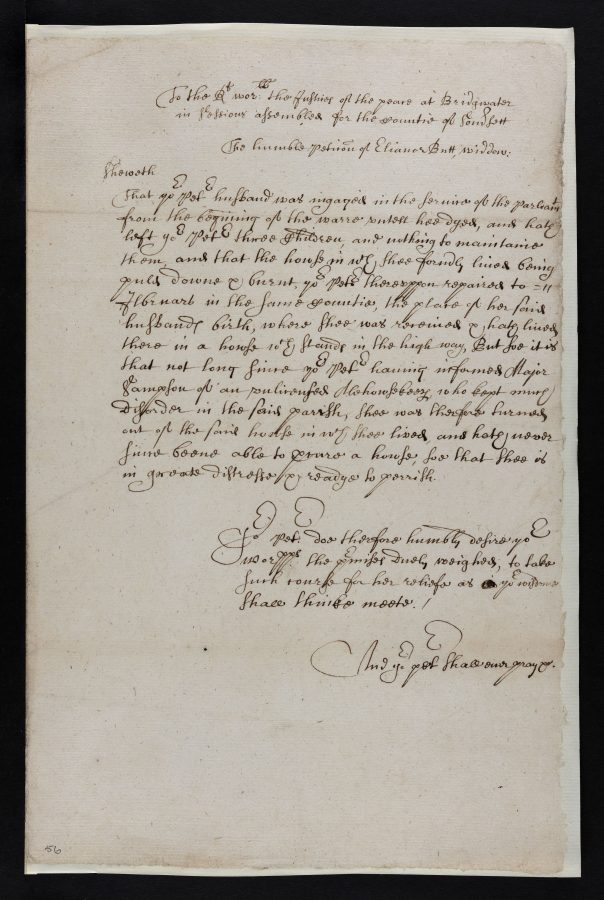 To the Rt worll: the Justices of the peace at Bridgwater
in Sessions assembled for the Countie of Somsett
The humble Peticion of Elianor Butt, widdow:
Sheweth
That yor Petrs husband was ingaged in the service of the parliamt
from the begining of the warre untill hee dyed, and hath
left yor Petr three Children, and nothing to maintaine
them, and that the house in wch shee form'ly lived being
puld downe & burnt, yor Petr thereuppon repaired to
in the same Countie, the place of her said
husbands birth, where shee was received & hath lived
there in a house wch stands in the high way, But soe it is
that not long since yor Petr having informed Major
Sampson of an unlicensed Alehousekeepr who kept much
disorder in the said parish, shee was therfore turned
out of the said house in wch shee lived and hath never
since beene able to p'cure a house, soe that shee is
in greate distresse & readye to perrish.
Yor Petr doe therfore humbly desire yor
worpps the p'misses duely weighed, to take
such course for her reliefe as yor wisdomes
shall thinke meete. /
And yor petr shall ever pray &c.
56